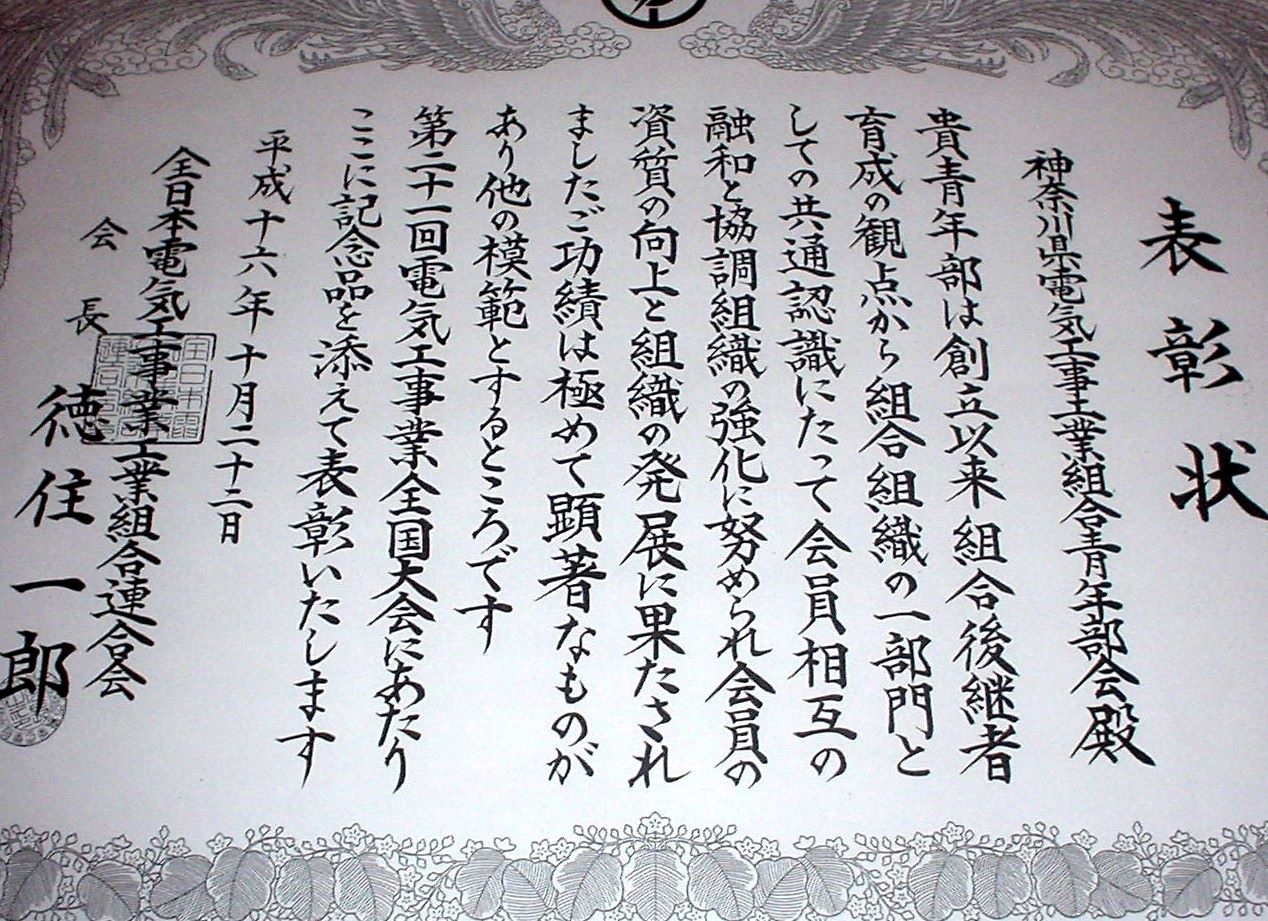 表彰状
神奈川県電気工事工業組合青年部会殿
貴青年部は創立以来組合後継者
育成の観点から組合組織の一部門と
しての共通認識にたって会員相互の
融和と協調組織の強化に努められ会員の
資質の向上と組織の発展に果たされ
ましたご功績は極めて顕著なものが
あり他の模範とするところです
第二十一回電気工事業全国大会にあたり
ここに記念品を添えて表彰いたします
平成十六年十月二十二日
全日本電気工事業工業組合連合会
会長 徳住一郎